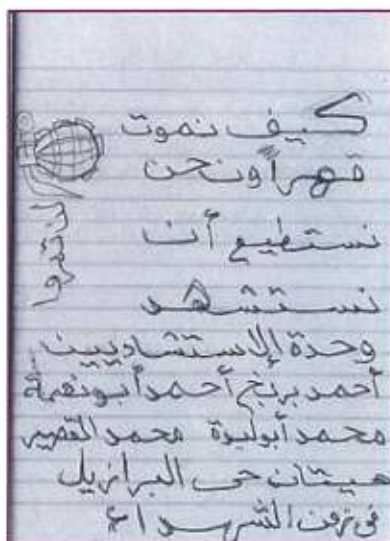 كيف نموت
قهراً ونحن
نستطيع أن
نستشهد
وحدة الإستشاديين
أحمد برنج أحمد أبو نعمة
محمد أبو لبدة محمد القصير
هيتان حى البرازيل
فى زمن الشهداء